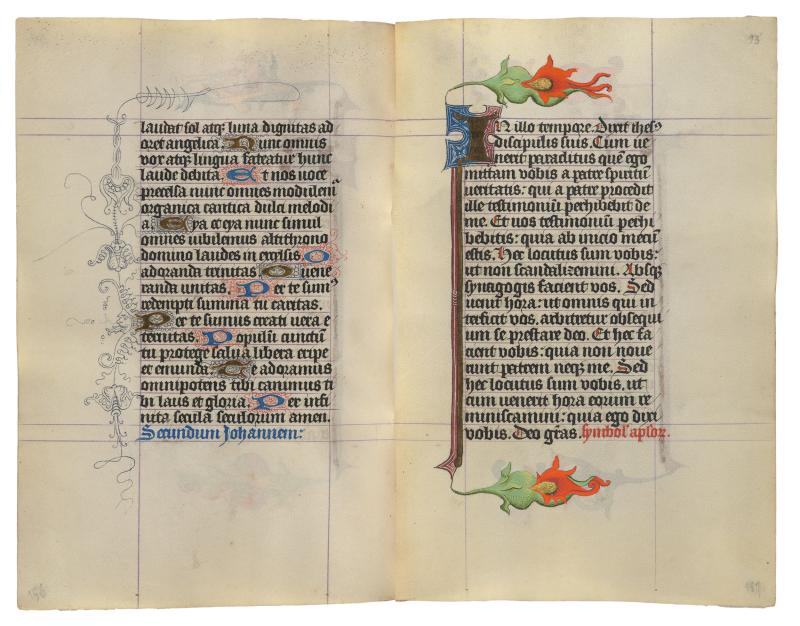 laudat sol atqz luna dignitas ad
oret angelica. Nunc omnis
vox atqz lingua fateatur hunc
laude debita. Et nos voce
precelsa nunc omnes moduleni
organica cantica dulci melodi
a. Eya et eya nunc simul
omnes iubilemus altithrono
domino laudes in excelsis. O
adoranda trinitas. O vene
randa unitas. Per te sum9
redempti summa tu caritas.
Per te sumus creati vera e
ternitas. Populū cunctū
tu protege salva libera eripe
et emunda. Te adoramus
omnipotens tibi canimus ti
bi laus et gloria. Per infi
nita seculā seculorum amen.
Secundum Johannem:
93
In illo tempore. Dixit ihes9
discipulis suis. Cum ve
nerit paraclitus quē ego
mittam vobis a patre spiritū
veritatis: qui a patre procedit
ille testimoniū perhibebit de
me. Et vos testimoniū perhi
bebitis: quia ab inicio mecū
estis. Hec locutus sum vobis:
ut non scandalizemini. Absqz
synagogis facient vos. Sed
venit hora: ut omnis qui in
terficit vos, arbitretur obsequi
um se prestare deo. Et hec fa
cient vobis: quia non nove
runt patrem neqz me. Sed
hec locutus sum vobis, ut
cum venerit hora eorum re
miniscamini: quia ego dixi
vobis. Deo grās. symbol' aplor.
186
187